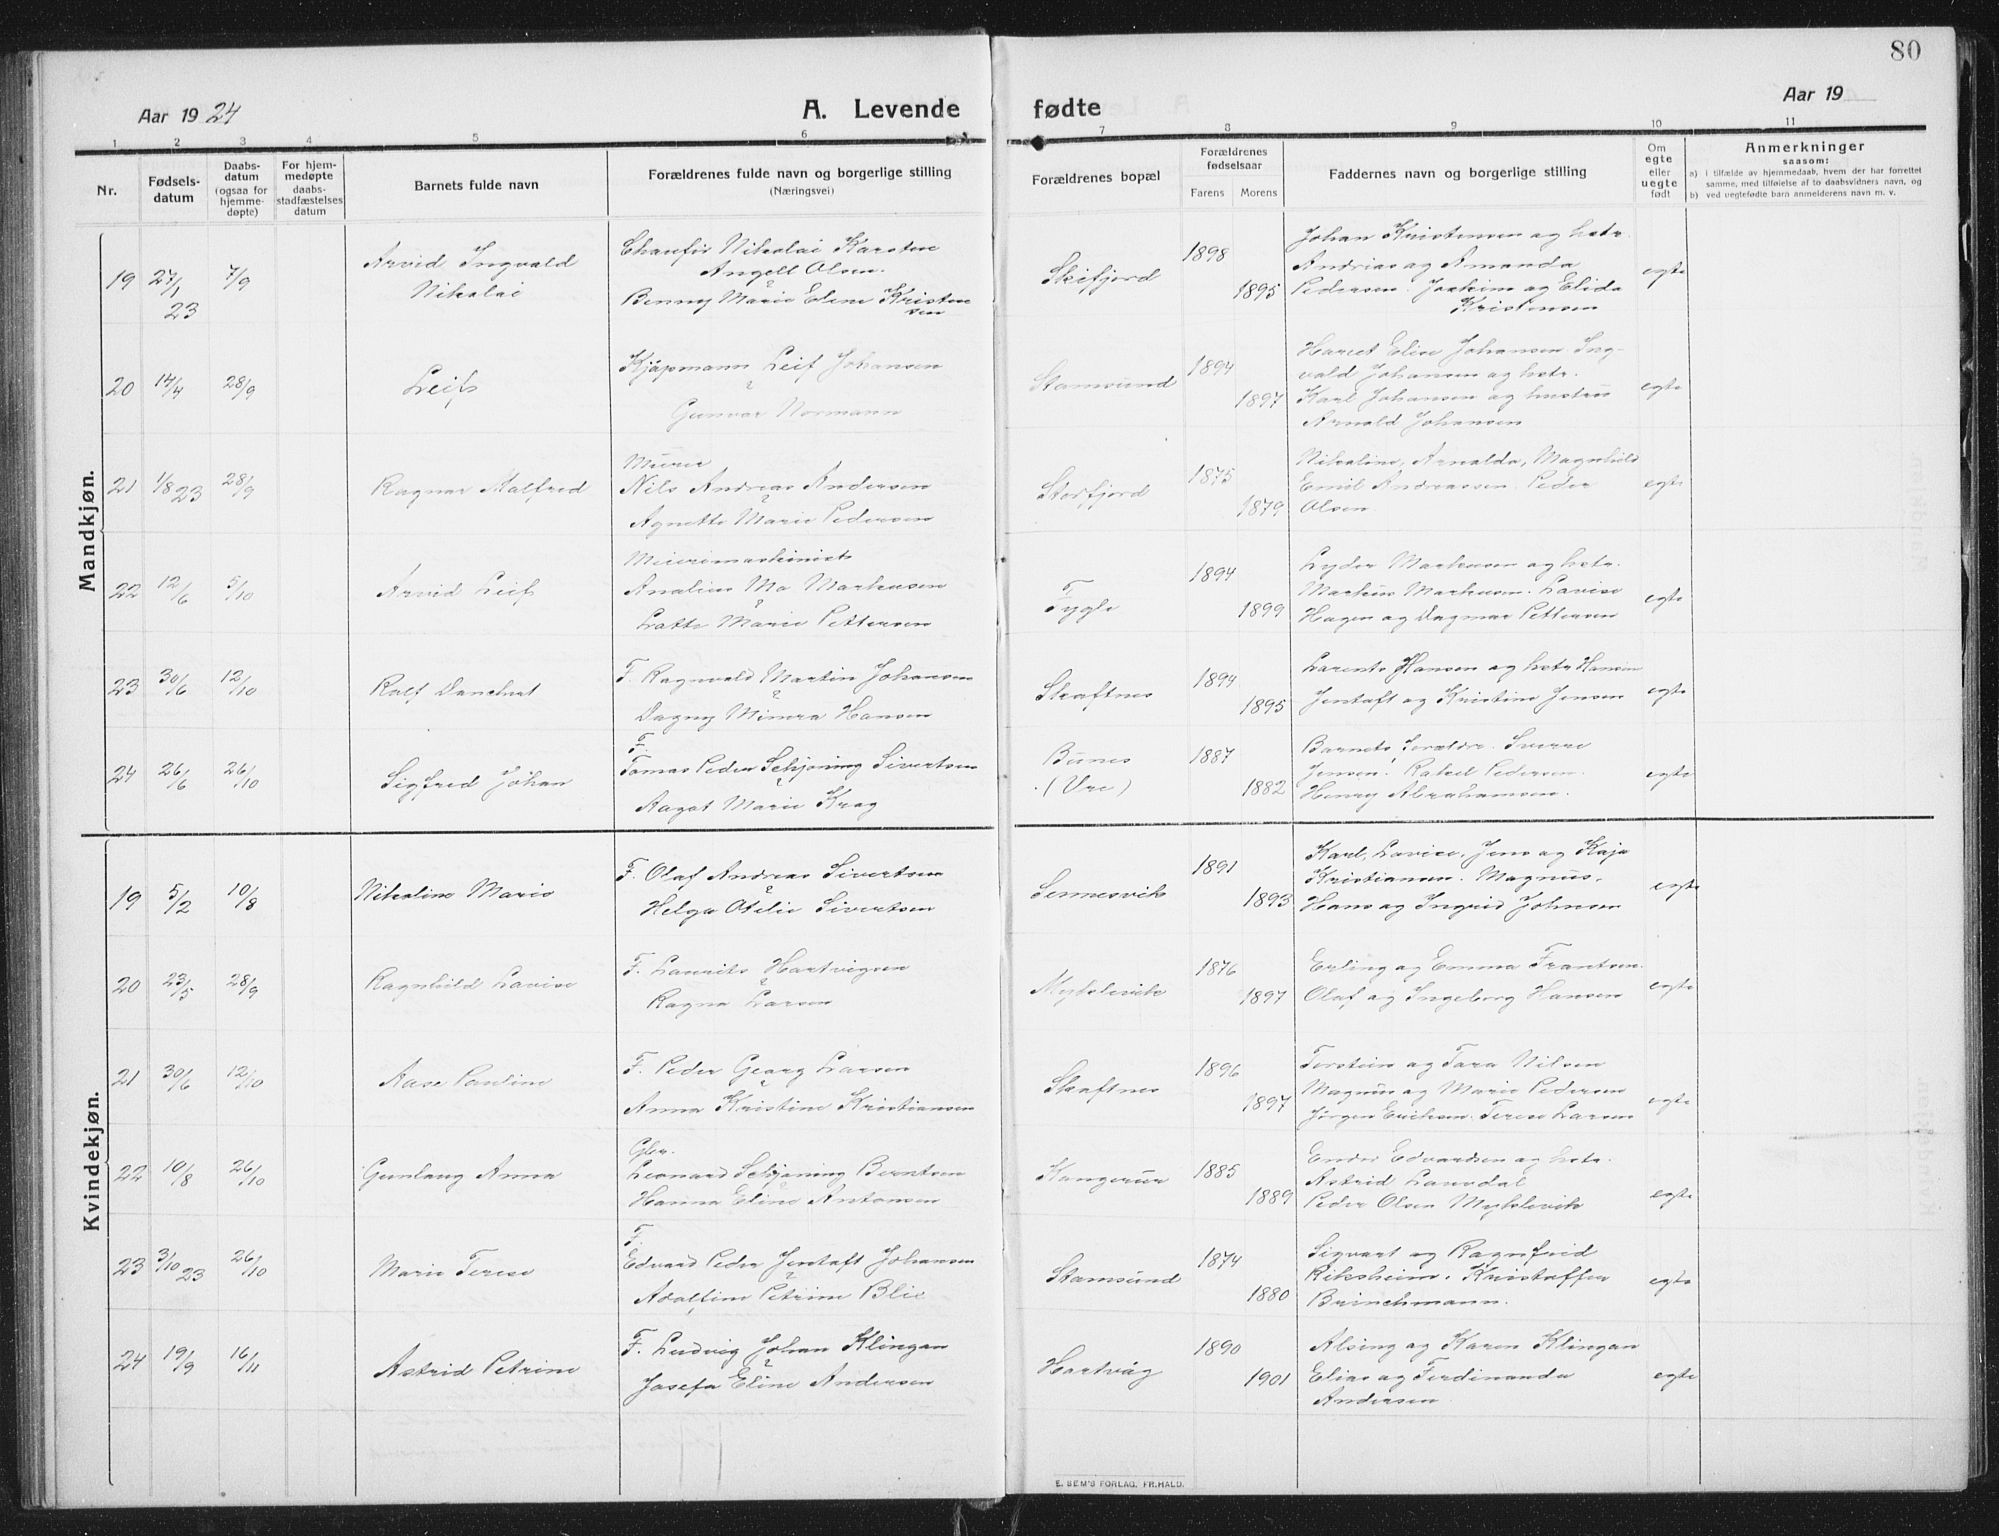 80
Aar 1924
A. Levende
fødte
Aar 19
1 2 3 4 5 6 7 8 9 10 11
Nr.
Fødsels-
datum
Daabs-
datum
(ogsaa for
hjemme-
døpte)
For hjem-
medøpte
daabs-
stadfæstelses
datum
Barnets fulde navn
Forældrenes fulde navn og borgerlige stilling
(Næringsvei)
Forældrenes bopæl
Forældrenes
fødselsaar
Farens Morens
Faddernes navn og borgerlige stilling
Om
egte
eller
uegte
født
Anmerkninger
saasom:
a) i tilfælde av hjemmedaab, hvem der har forrettet
samme, med tilføielse af to daabsvidners navn, og
b) ved uegtefødte barn anmelderens navn m. v.
Mandkjøn.
19 27/1 23 7/9
Arvid Ingvald
Nikolai
Chaufør Nikolai Karsten
Angell Olsen.
Benny Marie Eline Kristen
sen
Skifjord
1898
1895
Johan Kristensen og hstr.
Andrias og Amanda
Pedersen. Joakim og Elida
Kristensen
egte
20 14/4 28/9
Leif
Kjøpmann Leif Johansen
Gunvor Normann
Stamsund
1894
1897
Hariet Elise Johansen Ing-
vald Johansen og hstr.
Karl Johansen og hustru
Arnold Johansen
egte
21 1/8 23 28/9
Ragnar Alfred
Murer
Nils Andreas Andersen
Agnette Marie Pedersen
Storfjord
1875
1879
Nikoline, Arnalda, Magnhild
Emil Andreassen. Peder
Olsen.
egte
22 12/6 5/10
Arvid Leif
Meierimaskinist
Analius Mo Markusen
Lotte Marie Pettersen
Fygle
1894
1899
Lyder Markusen og hstr.
Markus Markusen. Lovise
Hagen og Dagmar Pettersen
egte
23 30/6 12/10
Rolf Danelust
F. Ragnvald Martin Johansen
Dagny Minera Hansen
Skaftnes
1894
1895
Lorents Hansen og hstr Hansen
Jentoft og Kristine Jensen
egte
24 26/6 26/10
Sigfred Johan
F.
Tomas Peder Schjøning Sivertsen
Aagot Marie Krog
Bunes
(Ure)
1887
1882
Barnets forældre. Sverre
Jensen. Rakel Pedersen.
Henry Abrahamsen.
egte
Kvindekjøn.
19 5/2 10/8
Nikoline Marie
F. Olaf Andreas Sivertsen
Helga Otilie Sivertsen
Sennesvik
1891
1893
Karl, Lovise, Jens og Kaja
Kristiansen. Magnus,
Hans og Ingrid Johnsen
egte
20 23/5 28/9
Ragnhild Lovise
F. Laurits Hartvigsen
Ragna Larsen
Myklevik
1876
1897
Erling og Emma Frantsen.
Olaf og Ingeborg Hansen
egte
21 30/6 12/10
Aase Pauline
F. Peder Georg Larsen
Anna Kristine Kristiansen
Skaftnes
1896
1897
Torstein og Tora Nilsen
Magnus og Marie Pedersen
Jørgen Eriksen. Terese Larsen
egte
22 10/8 26/10
Gunlaug Anna
Gbr.
Leonard Schjøning Berntsen
Hanna Eline Antonsen
Kangerur
1885
1889
Ender Edvardsen og hstr.
Astrid Lauvdal
Peder Olsen Myklevik
egte
23 3/10 23 26/10
Marie Terese
F.
Edvard Peder Jentoft Johansen
Adolfine Petrine Blix
Stamsund
1874
1880
Sigvart og Ragnfrid
Riksheim. Kristoffer
Brinchmann.
egte
24 19/9 16/11
Astrid Petrine
F. Ludvig Johan Klingan
Josefa Eline Andersen
Hartvåg
1890
1901
Alsing og Karen Klingan
Elias og Ferdinanda
Andersen
egte
E. SEM'S FORLAG. FR.HALD.